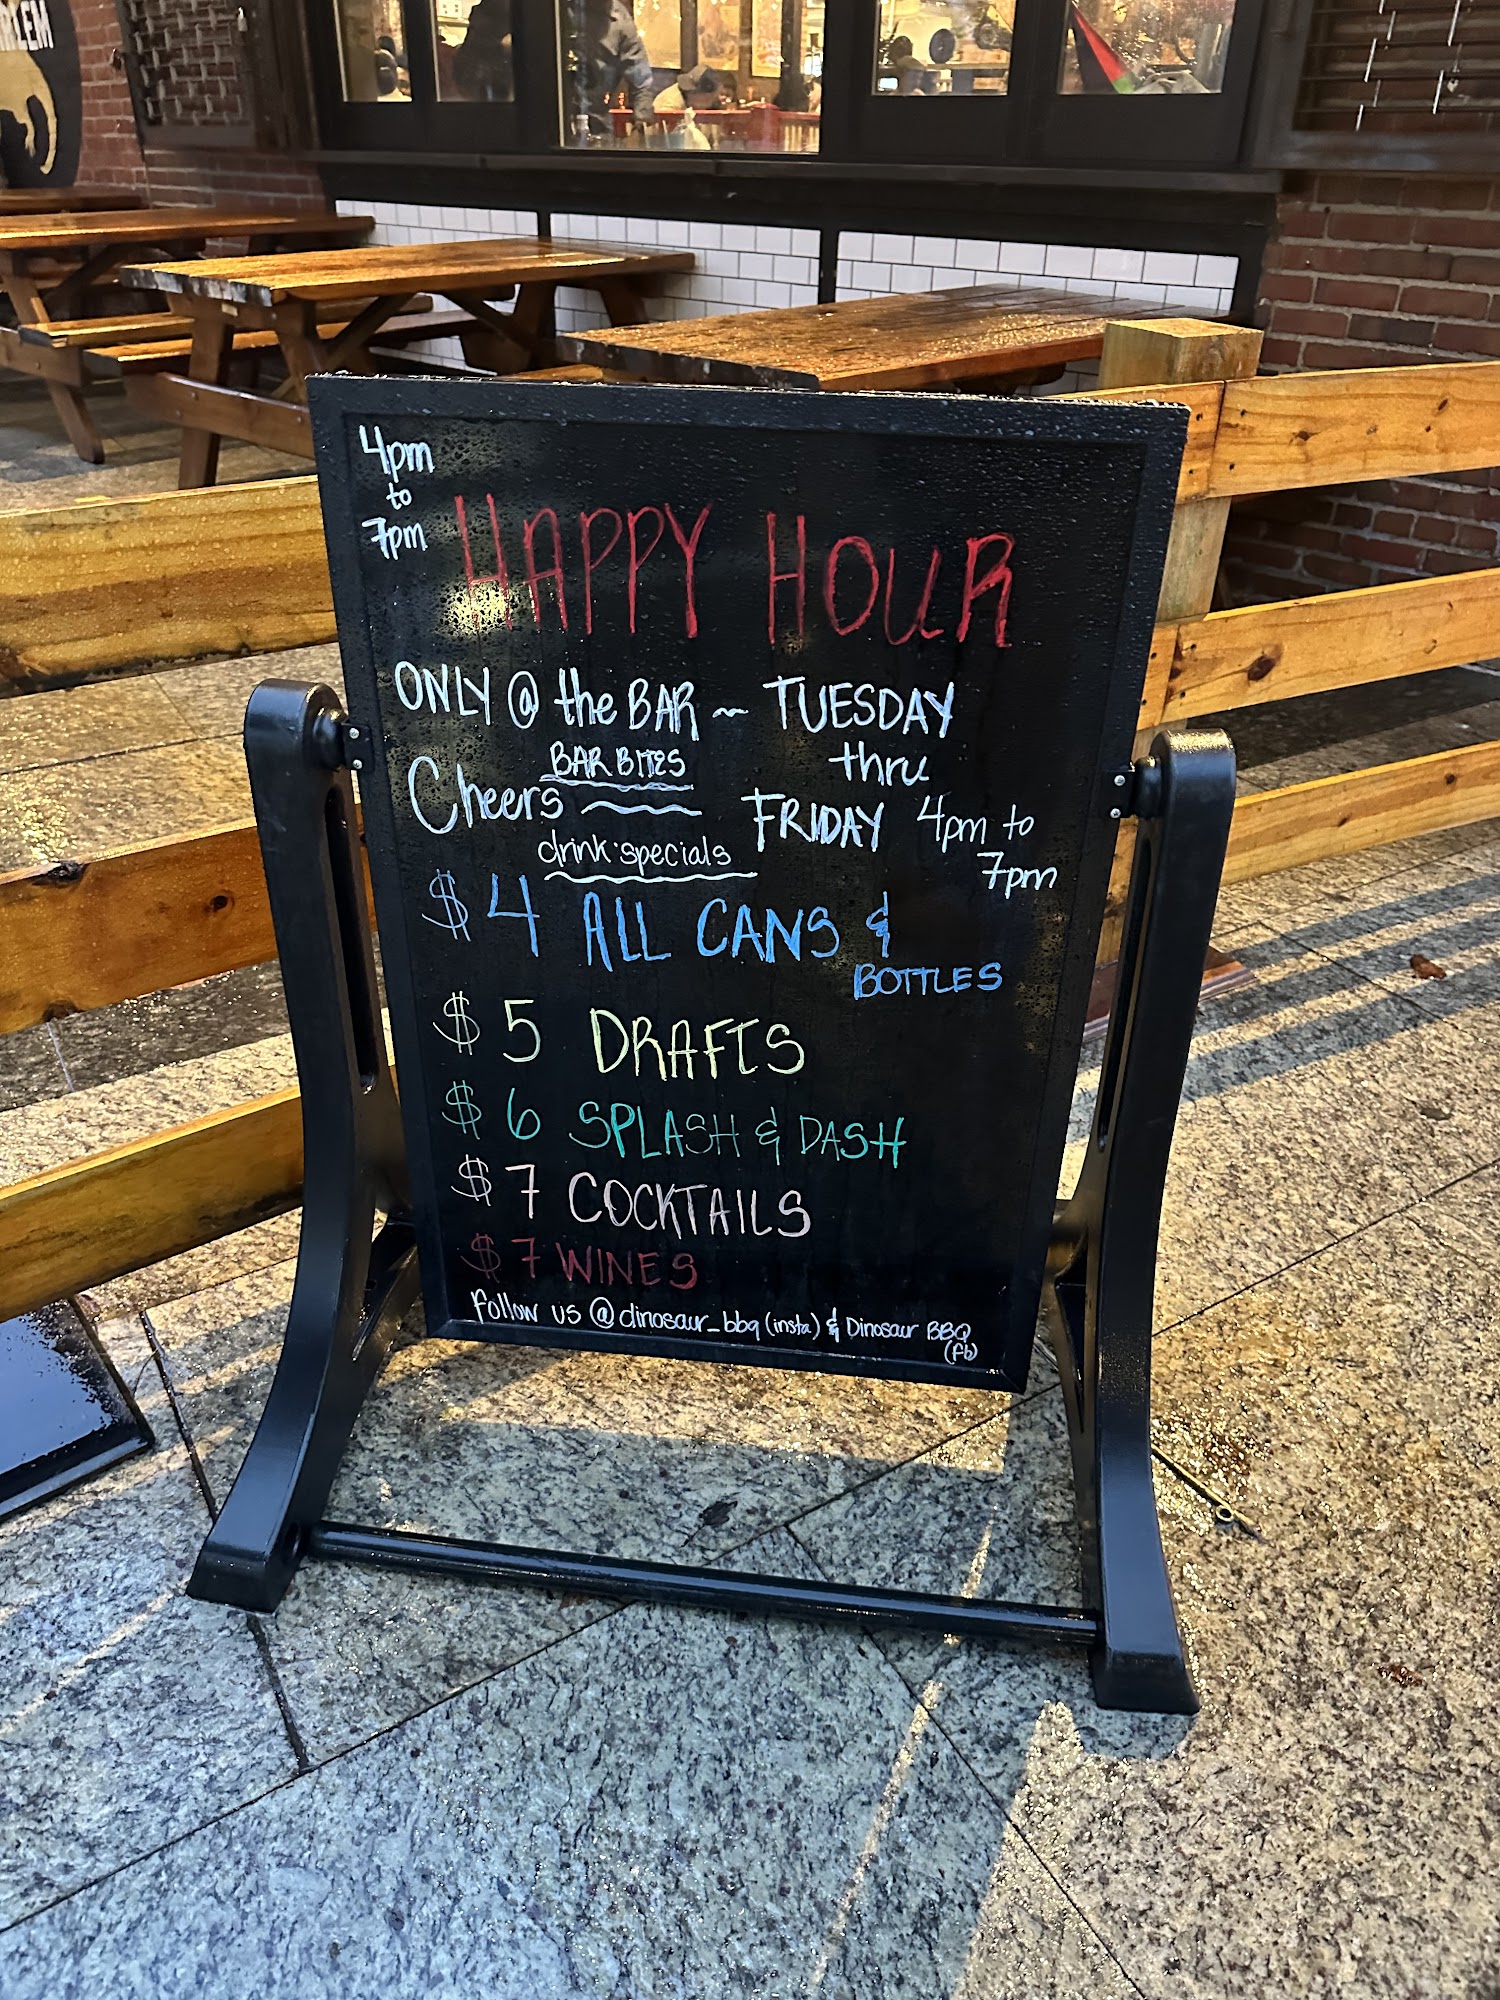 4pm
to
7pm
HAPPY HOUR
ONLY @ the BAR ~ TUESDAY
thru
FRIDAY 4pm to
7pm
BAR BITES
Cheers
drink specials
$4 ALL CANS &
BOTTLES
$5 DRAFTS
$6 SPLASH & DASH
$7 COCKTAILS
$7 WINES
Follow us @dinosaur_bbq (insta) & Dinosaur BBQ
(fb)